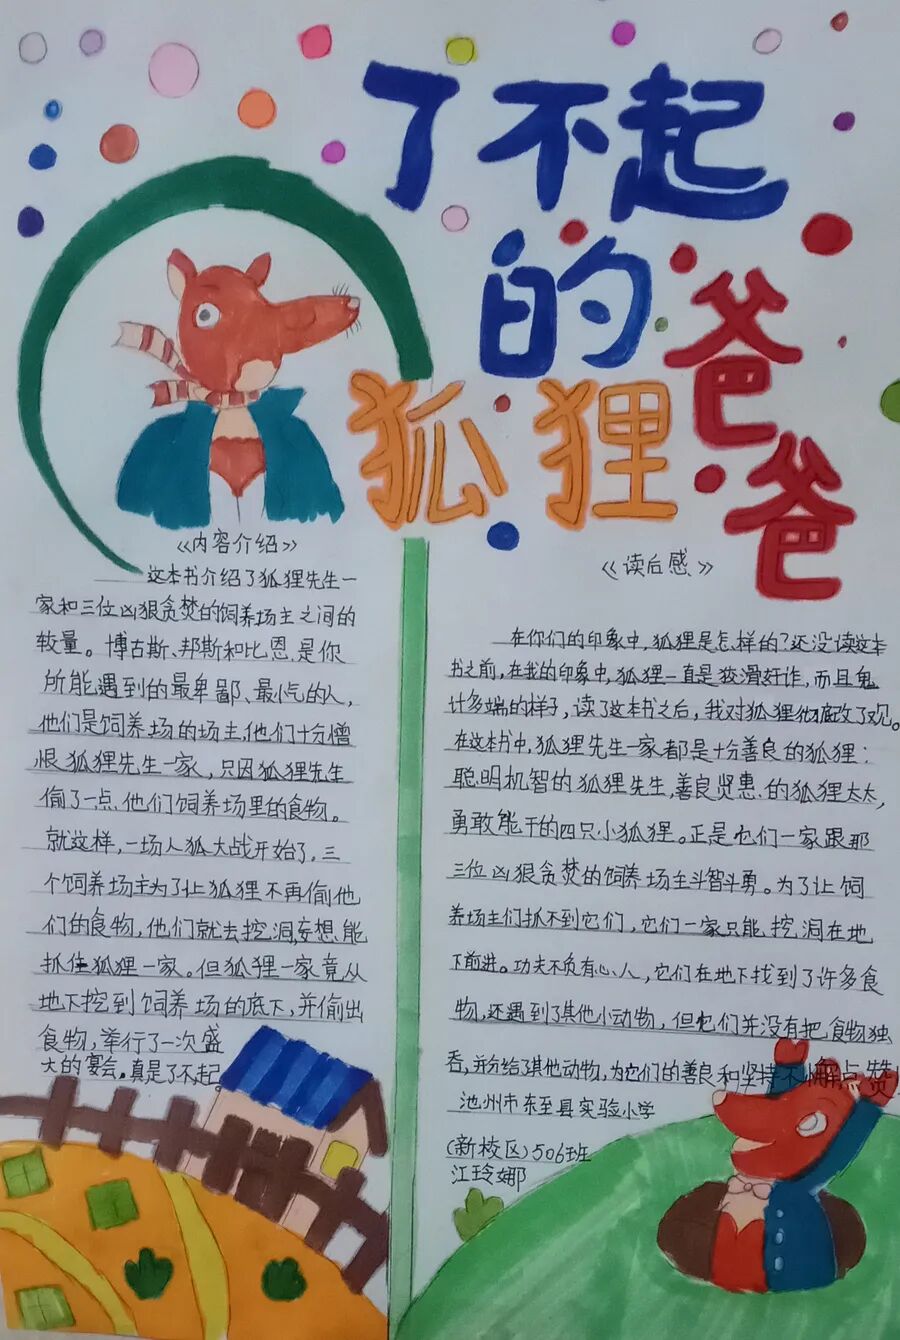 了不起
的
狐狸
爸爸
《内容介绍》
这本书介绍了狐狸先生一
家和三位凶狠贪焚的饲养场主之间的
较量。博古斯、邦斯和比恩.是你
所能遇到的最卑鄙、最小气的人,
他们是饲养场的场主,他们十分憎
恨狐狸先生一家,只因狐狸先生
偷了一点他们饲养场里的食物。
就这样,一场人狐大战开始了。三
个饲养场主为了让狐狸不再偷他
们的食物,他们就去挖洞,妄想能
抓住狐狸一家。但狐狸一家竟从
地下挖到饲养场的底下,并偷出
食物,举行了一次盛
大的宴会。真是了不起。
《读后感》
在你们的印象中,狐狸是怎样的?还没读这本
书之前,在我的印象中,狐狸一直是狡滑奸诈,而且鬼
计多端的样子,读了这本书之后,我对狐狸彻底改了观。
在这本书中,狐狸先生一家都是十分善良的狐狸:
聪明机智的狐狸先生,善良贤惠.的狐狸太太,
勇敢能干的四只小狐狸。正是它们一家跟那
三位凶狠贪焚的饲养场主斗智斗勇。为了让饲
养场主们抓不到它们,它们一家只能挖洞在地
下前进。功夫不负有心人,它们在地下找到了许多食
物,还遇到了其他小动物,但它们并没有把食物独
吞,并分给了其他动物,为它们的善良和坚持不懈点赞!
池州市东至县实验小学
(新校区)506班
江玲娜